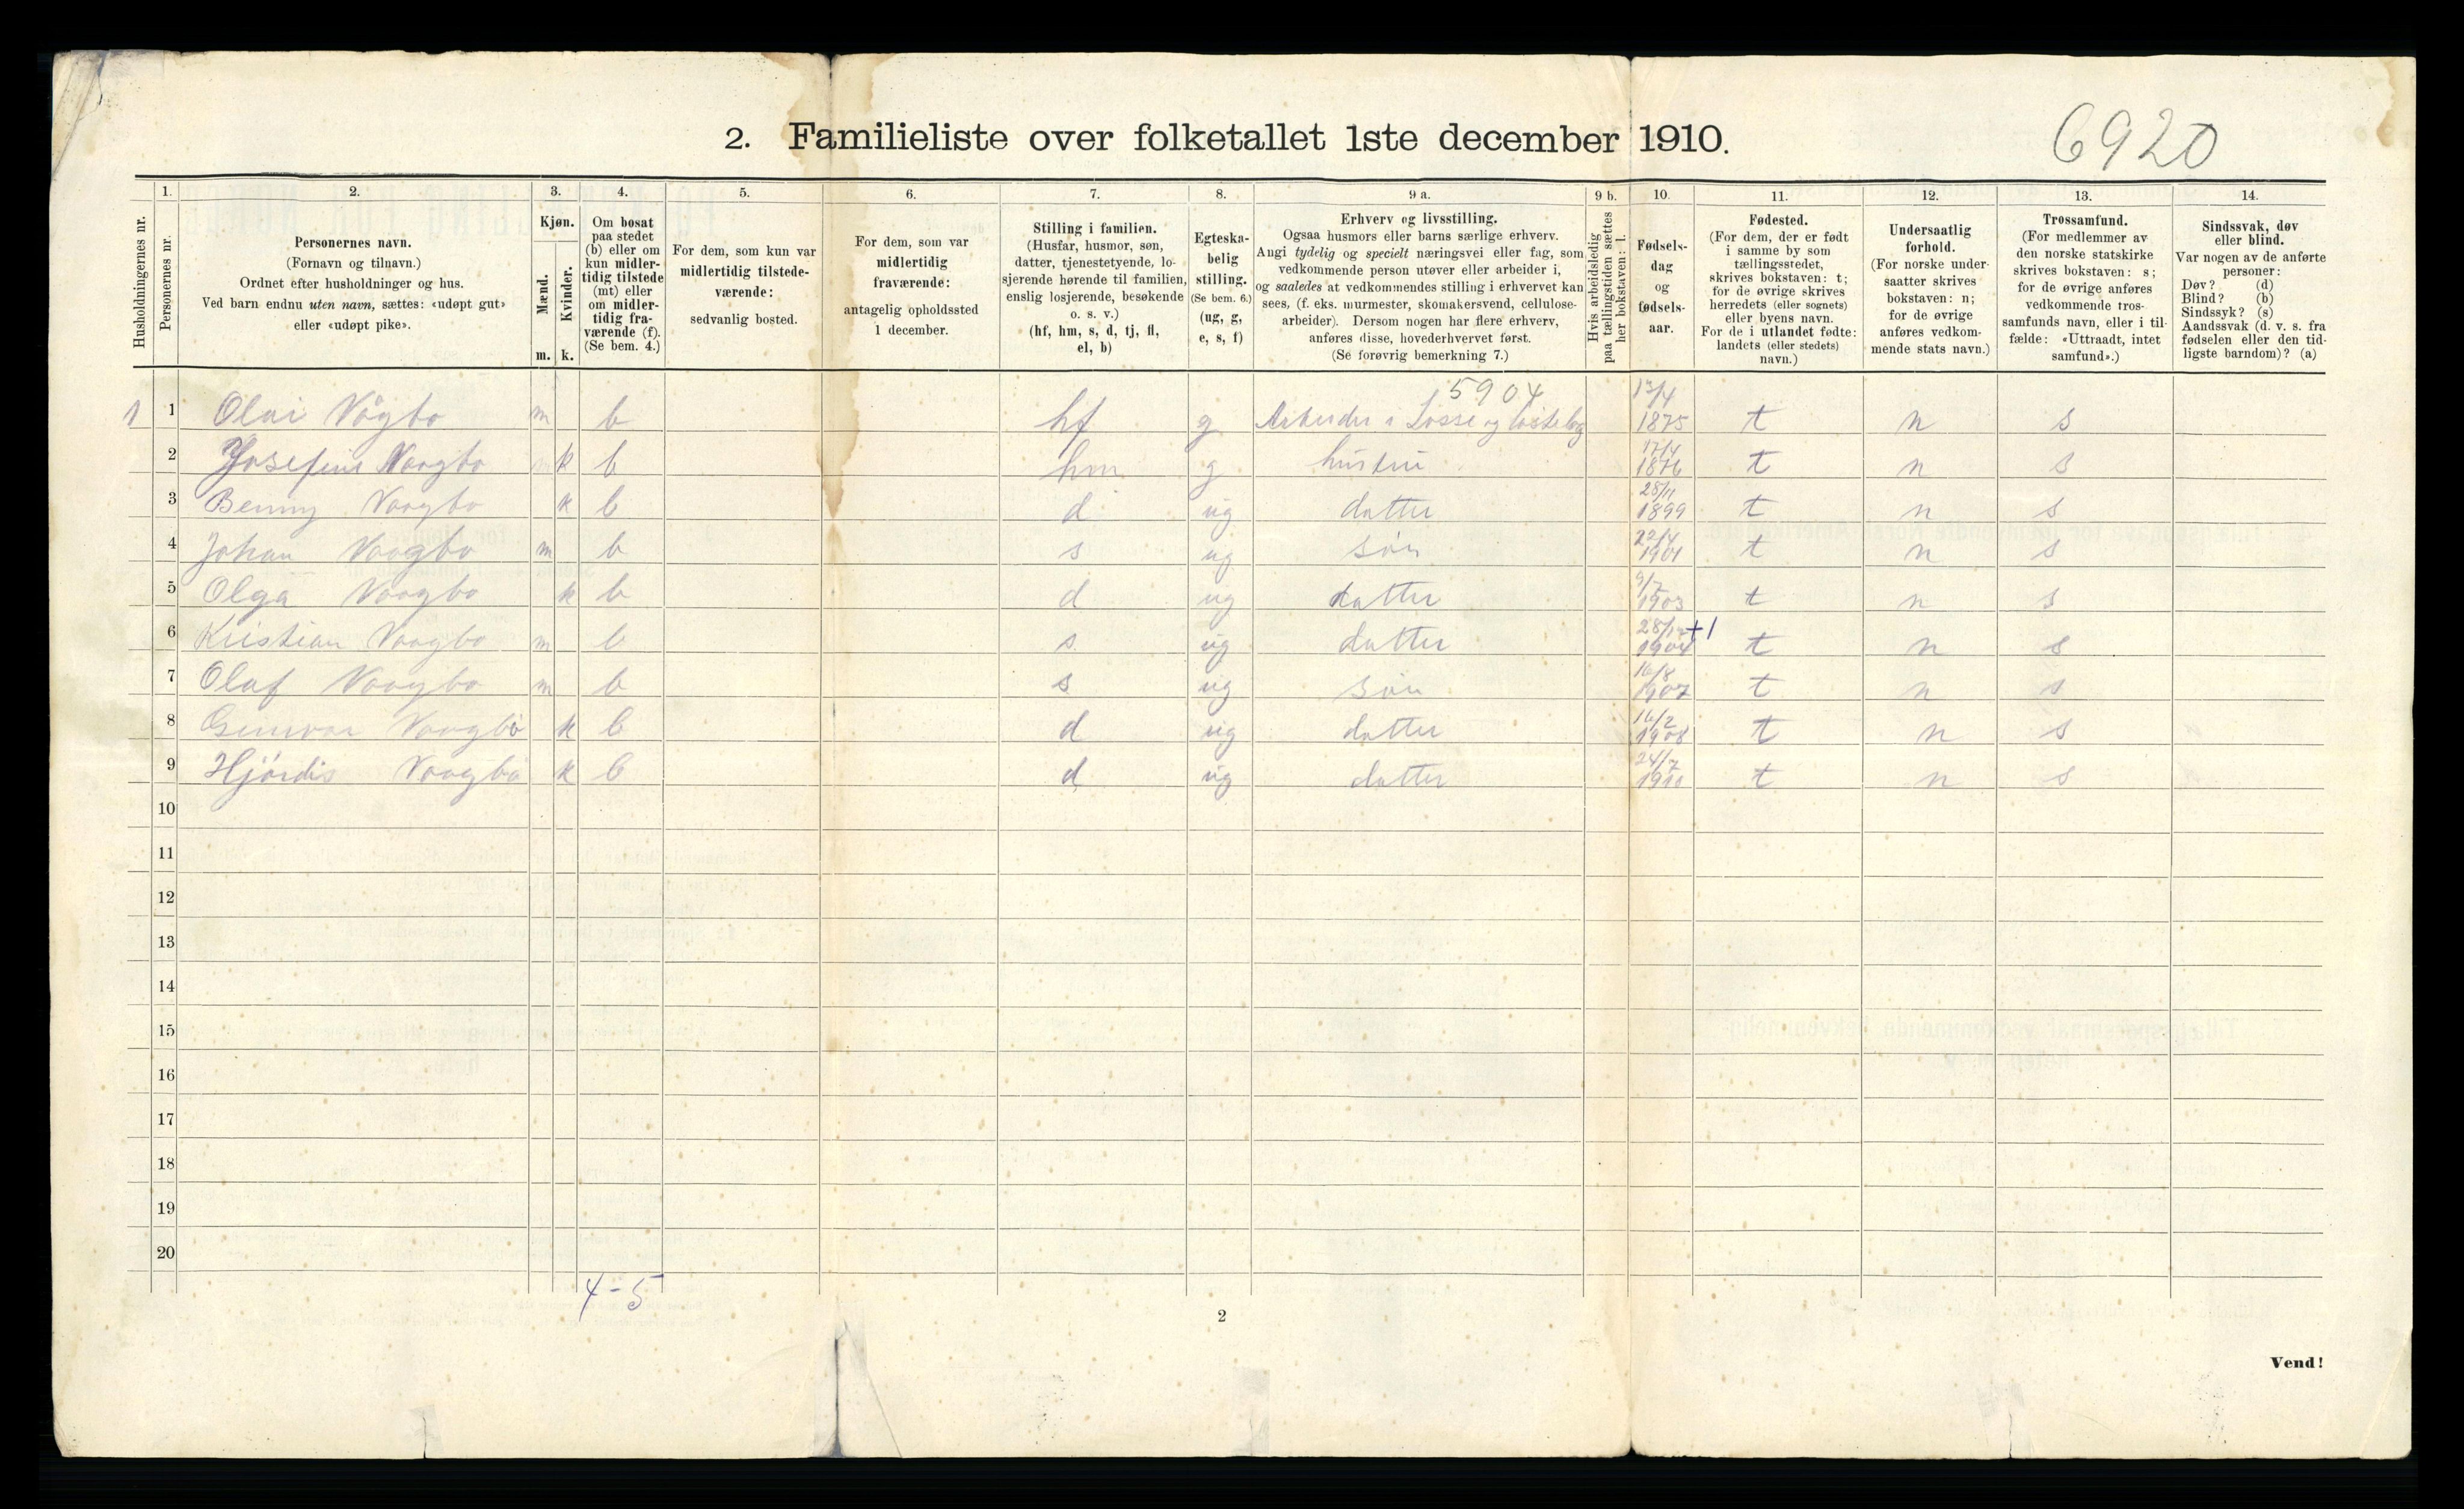 6920
2. Familieliste over folketallet 1ste december 1910.
Husholdningernes nr.
1. Personernes nr.
2. Personernes navn.
(Fornavn og tilnavn.)
Ordnet efter husholdninger og hus.
Ved barn endnu uten navn, sættes: «udøpt gut»
eller «udøpt pike».
3. Kjøn.
Mænd. m.
Kvinder. k.
4. Om bosat
paa stedet
(b) eller om
kun midler-
tidig tilstede
(mt) eller
om midler-
tidig fra-
værende (f).
(Se bem. 4.)
5. For dem, som kun var
midlertidig tilstede-
værende:
sedvanlig bosted.
6. For dem, som var
midlertidig
fraværende:
antagelig opholdssted
1 december.
7. Stilling i familien.
(Husfar, husmor, søn,
datter, tjenestetyende, lo-
sjerende hørende til familien,
enslig losjerende, besøkende
o. s. v.)
(hf, hm, s, d, tj, fl,
el, b)
8. Egteska-
belig
stilling.
(Se bem. 6.)
(ug, g,
e, s, f)
9 a. Erhverv og livsstilling.
Ogsaa husmors eller barns særlige erhverv.
Angi tydelig og specielt næringsvei eller fag, som
vedkommende person utøver eller arbeider i,
og saaledes at vedkommendes stilling i erhvervet kan
sees, (f. eks. murmester, skomakersvend, cellulose-
arbeider). Dersom nogen har flere erhverv,
anføres disse, hovederhvervet først.
(Se forøvrig bemerkning 7.)
9 b. Hvis arbeidsledig
paa tællingstiden sættes
her bokstaven: l.
10. Fødsels-
dag
og
fødsels-
aar.
11. Fødested.
(For dem, der er født
i samme by som
tællingsstedet,
skrives bokstaven: t;
for de øvrige skrives
herredets (eller sognets)
eller byens navn.
For de i utlandet fødte:
landets (eller stedets)
navn.)
12. Undersaatlig
forhold.
(For norske under-
saatter skrives
bokstaven: n;
for de øvrige
anføres vedkom-
mende stats navn.)
13. Trossamfund.
(For medlemmer av
den norske statskirke
skrives bokstaven: s;
for de øvrige anføres
vedkommende tros-
samfunds navn, eller i til-
fælde: «Uttraadt, intet
samfund».)
14. Sindssvak, døv
eller blind.
Var nogen av de anførte
personer:
Døv? (d)
Blind? (b)
Sindssyk? (s)
Aandssvak (d. v. s. fra
fødselen eller den tid-
ligste barndom)? (a)
5904
1 1 Olai Vågbo m b hf g Arbeider i Losse og 1875 t n s
2 Josefine Vaagbo k b hm g hustru 17/4 1876 t n s
3 Benny Vaagbo k b d ug datter 28/11 1899 t n s
4 Johan Vaagbo m b s ug søn 22/4 1901 t n s
5 Olga Vaagbo k b d ug datter 9/7 1903 t n s
6 Kristian Vaagbo m b s ug datter 28/12 +1 1904 t n s
7 Olaf Vaagbo m b s ug søn 16/8 1907 t n s
8 Gunvor Vaagbo k b d ug datter 16/2 1908 t n s
9 Hjørdis Vaagbo k b d ug datter 24/7 1910 t n s
10
11
12
13
14
15
16
17
18
19
20
4-5
2
Vend!